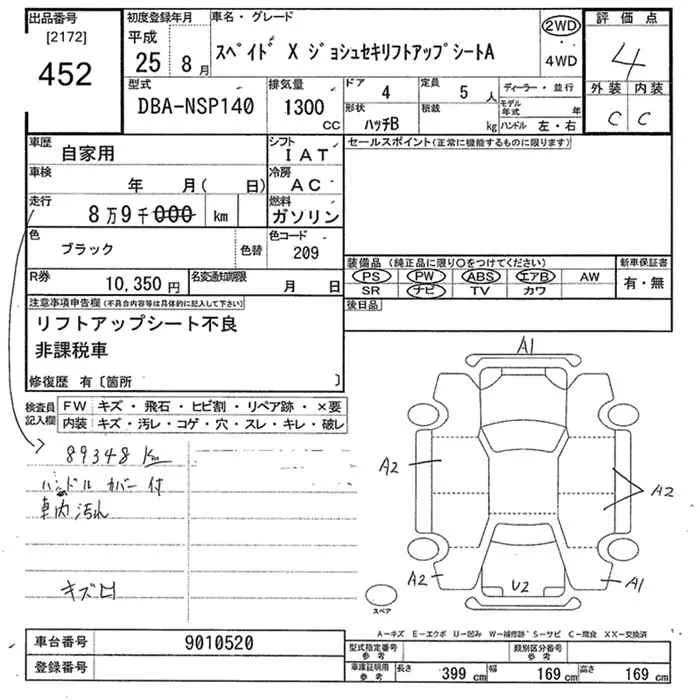 出品番号
[2172]
452
初度登録年月
平成
25 8月
車名・グレード
スペイド X ジョシュセキリフトアップシートA
2WD
4WD
評価点
4
外装 内装
C C
型式
DBA-NSP140
排気量
1300
CC
ドア 4
定員 5 人
形状 ハッチB
積載 kg
ディーラー・並行
モデル年式 年
ハンドル 左・右
車歴 自家用
シフト IAT
車検 年 月( 日)
冷房 AC
走行 8万9千000 km
燃料 ガソリン
色 ブラック
色替
色コード 209
R券 10,350円
名変通知期限 月 日
セールスポイント(正常に機能するものに限ります)
装備品 (純正品に限り〇をつけてください)
PS PW ABS エアB AW
SR ナビ TV カワ
新車保証書
有・無
後日品
注意事項申告欄(不具合内容等は具体的に記入して下さい)
リフトアップシート不良
非課税車
修復歴 有〔箇所 〕
検査員記入欄
FW キズ・飛石・ヒビ割・リペア跡・×要
内装 キズ・汚レ・コゲ・穴・スレ・キレ・破レ
89348 Km
ハンドルカバー付
車内汚れ
キズ凹
A1
A2
A2
A2
U2
A1
スペア
A-キズ E-エクボ U-凹み W-補修跡 S-サビ C-腐食 XX-交換済
車台番号 9010520
登録番号
型式指定番号 参考
類別区分番号 参考
車庫証明用 参考
長さ 399 cm 幅 169 cm 高さ 169 cm